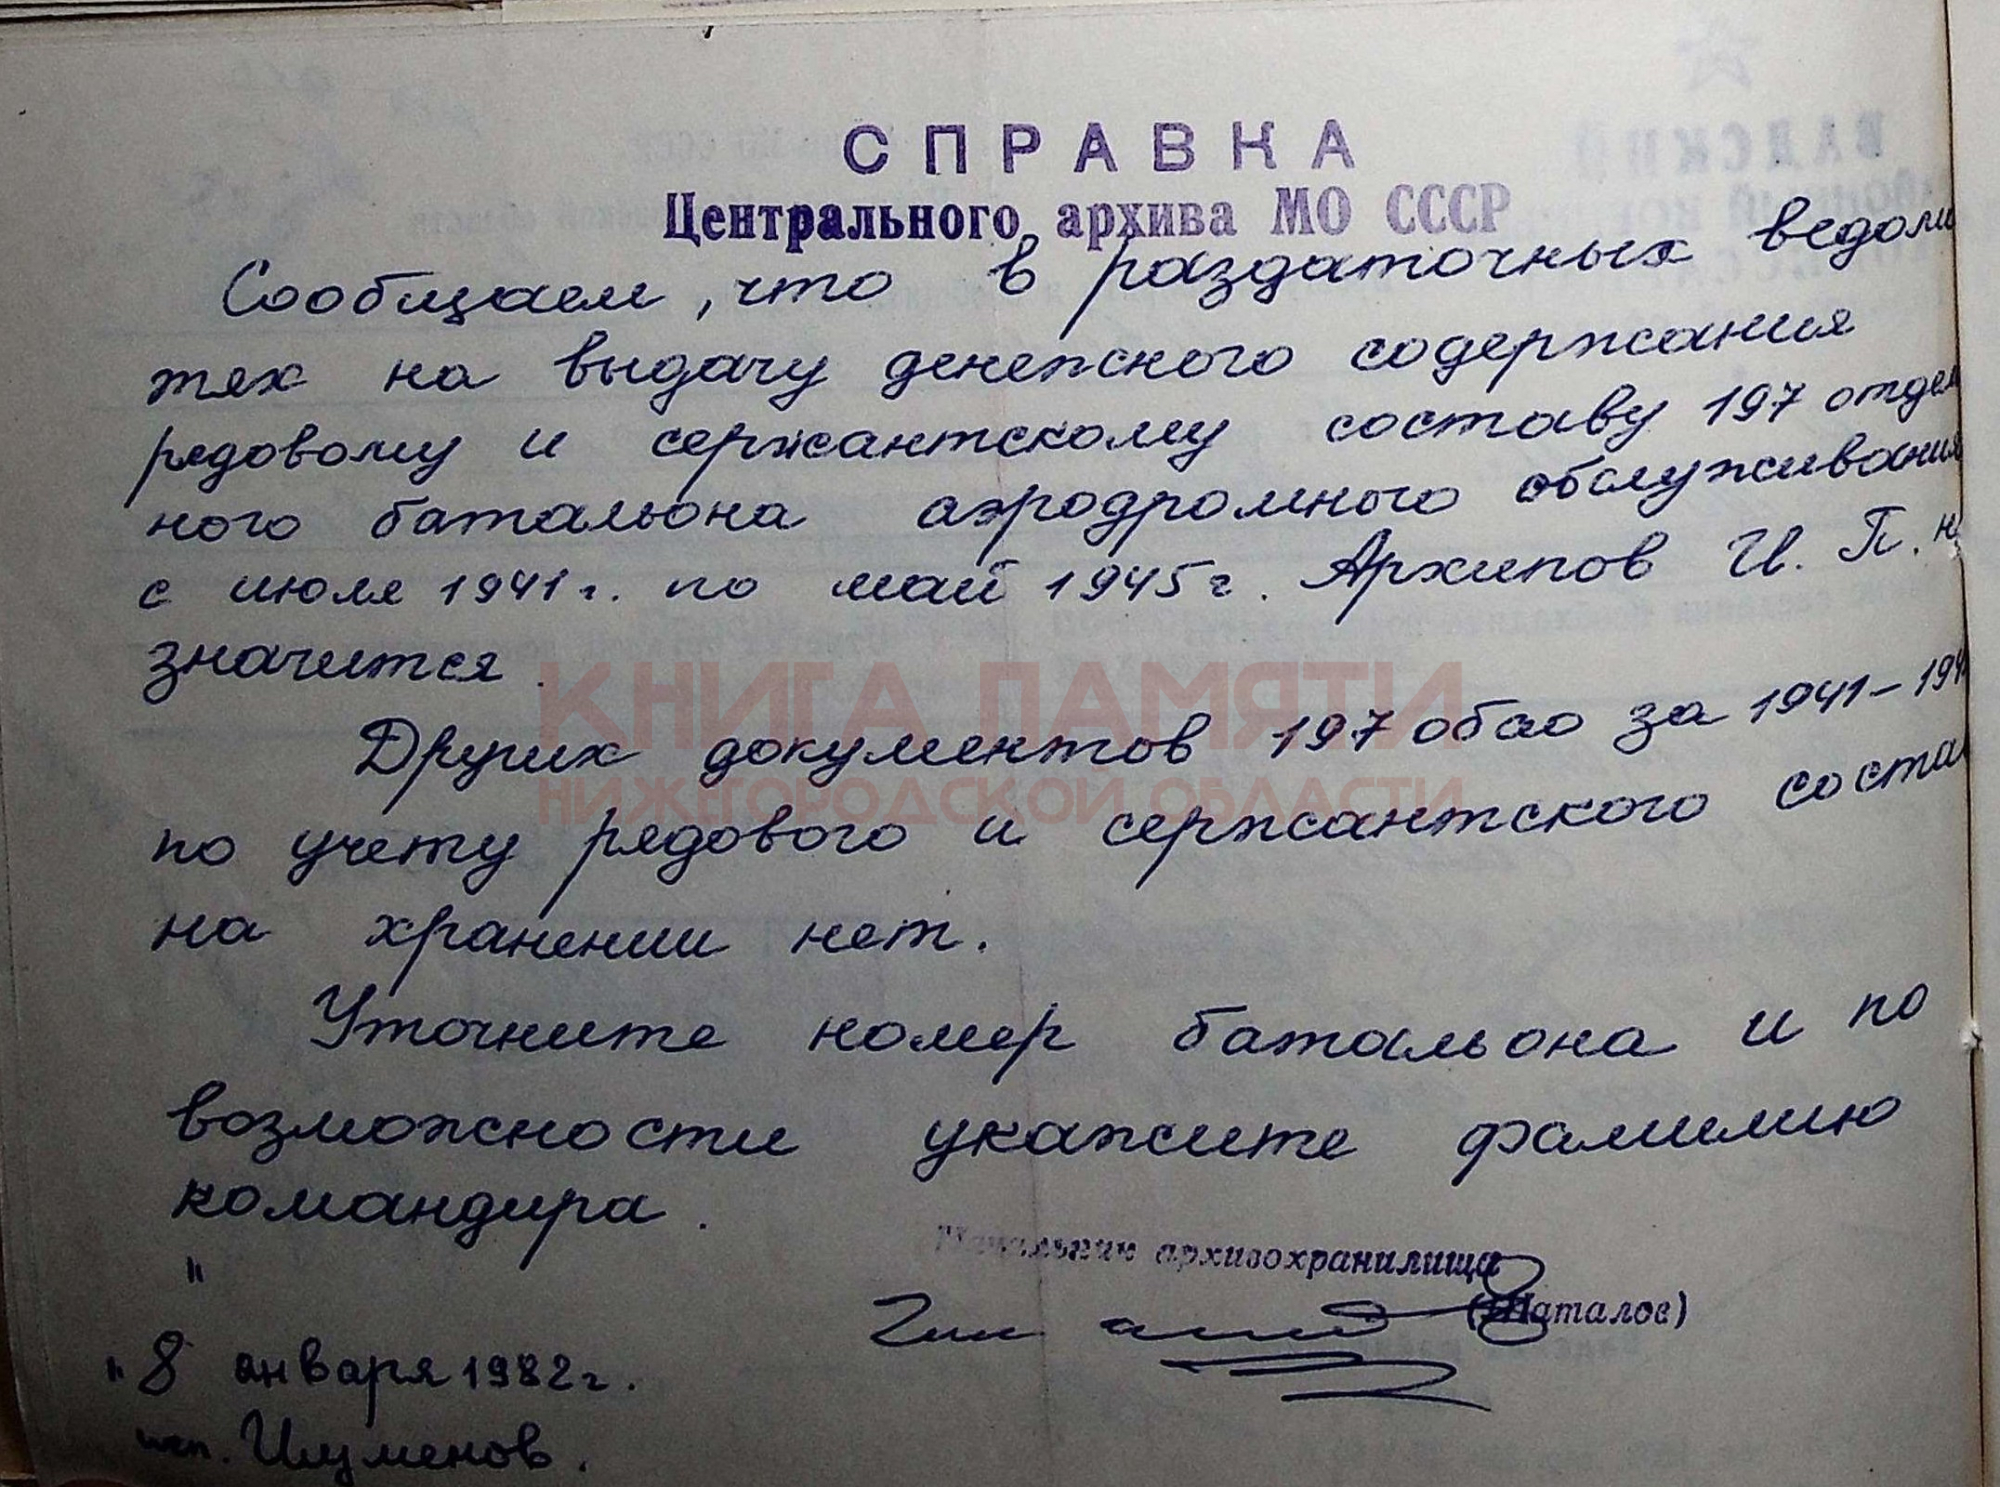 СПРАВКА
Центрального архива МО СССР
Сообщаем, что в раздаточных ведомо
тях на выдачу денежного содержания
рядовому и сержантскому составу 197 отдель
ного батальона аэродромного обслуживания
с июля 1941 г. по май 1945 г. Архипов И. П. не
значится.
КНИГА ПАМЯТИ
Других документов 197 обао за 1941-194
НИЖЕГОРОДСКОЙ ОБЛАСТИ
по учету рядового и сержантского соста
на хранении нет.
Уточните номер батальона и по
возможности укажите фамилию
командира.
"
Начальник архивохранилища
(Шаталов)
"8 января 1982 г.
исп. Игуменов.